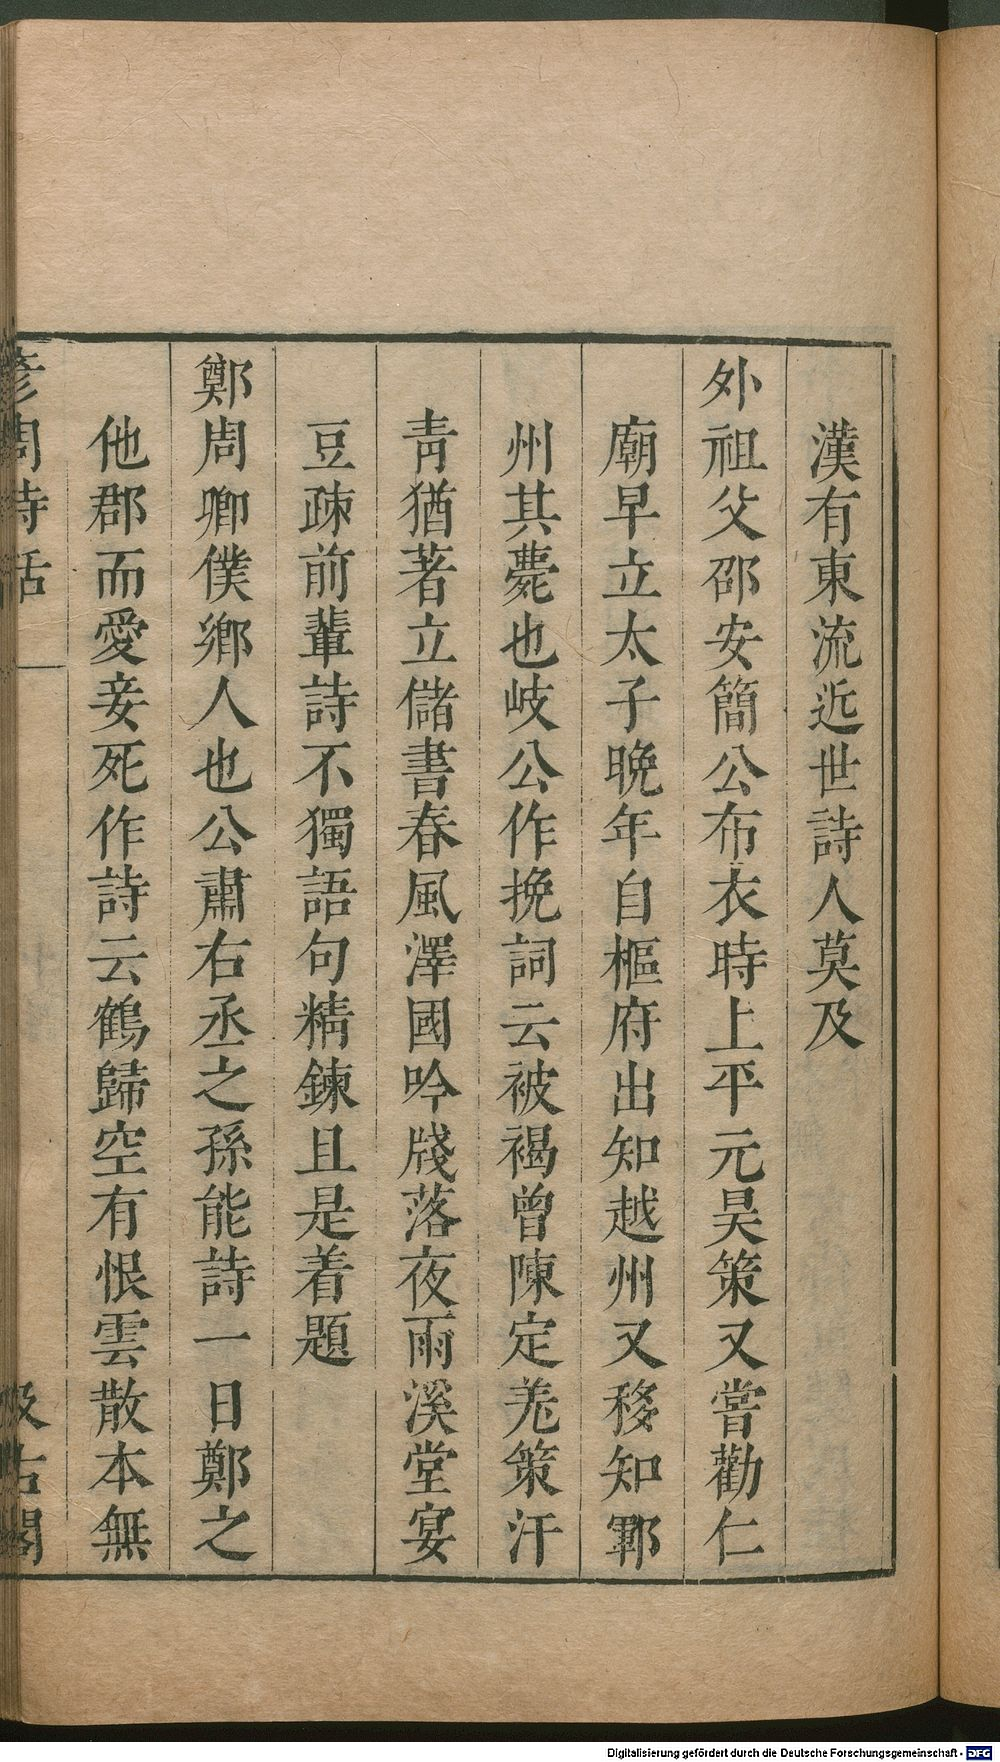 漢有東流近世詩人莫及
外祖父邵安簡公布衣時上平元昊策又嘗勸仁
廟早立太子晚年自樞府出知越州又移知鄆
州其薨也岐公作挽詞云被褐曾陳定羌策汗
青猶著立儲書春風澤國吟牋落夜雨溪堂宴
豆疎前輩詩不獨語句精鍊且是着題
鄭周卿僕鄉人也公肅右丞之孫能詩一日鄭之
他郡而愛妾死作詩云鶴歸空有恨雲散本無
彥周詩話 汲古閣
Digitalisierung gefördert durch die Deutsche Forschungsgemeinschaft - DFG